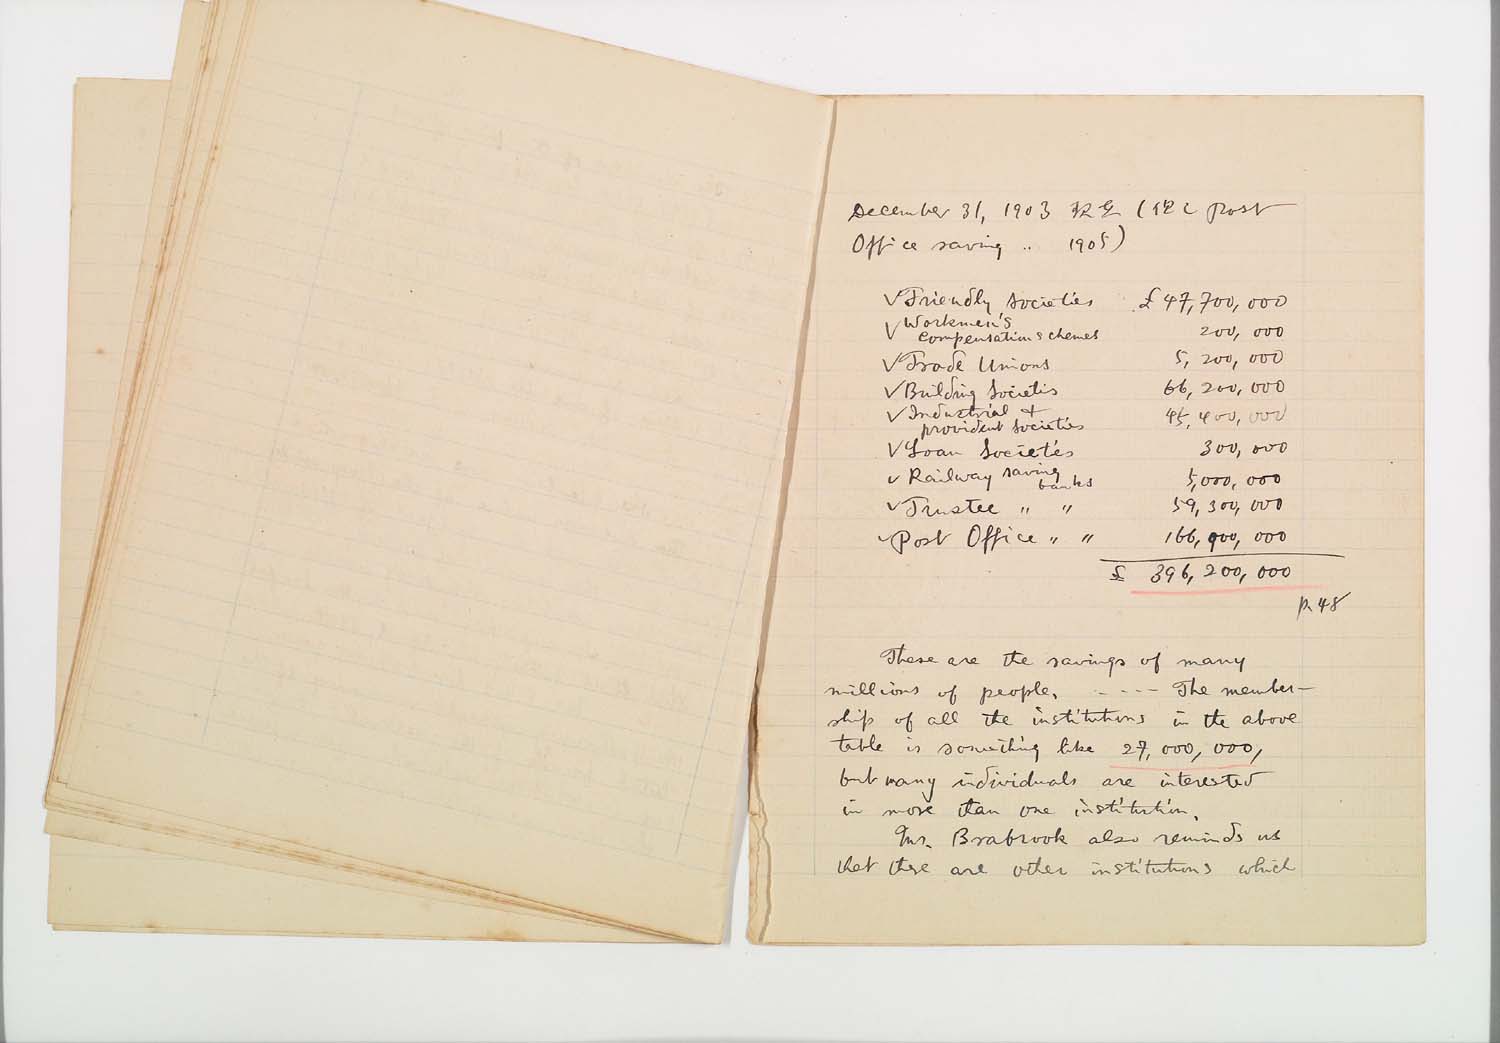 December 31, 1903 現在 (但し Post
Office saving 〃 1905)
✓ Friendly Societies £ 47,700,000
✓ Workmen's
compensation schemes 200,000
✓ Trade Unions 5,200,000
✓ Building Societis 66,200,000
✓ Industrial +
provident Societies 45,400,000
✓ Loan Societies 300,000
✓ Railway saving
banks 5,000,000
✓ Trustee 〃 〃 59,300,000
✓ Post Office 〃 〃 166,900,000
£ 396,200,000
p. 48
These are the savings of many
millions of people, - - - - The member-
ship of all the institutions in the above
table is something like 27,000,000,
but many individuals are interested
in more than one institution.
Mr. Brabrook also reminds us
that there are other institutions which